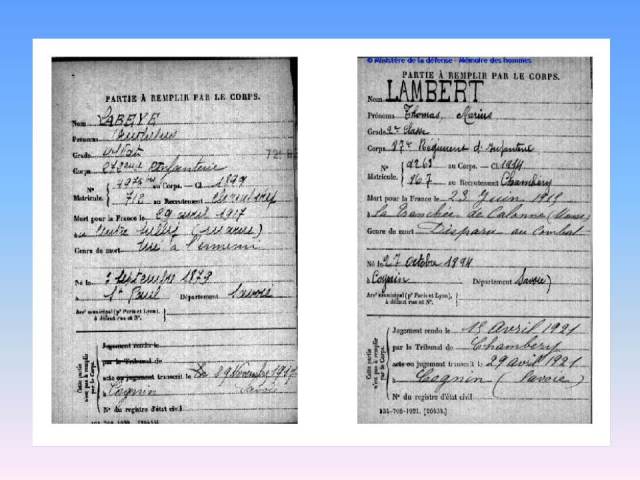 PARTIE À REMPLIR PAR LE CORPS.
Nom LABEYE
Prénoms
Grade
Corps Infanterie
N° Matricule. au Corps. — Cl 1899
au Recrutement Chambéry
Mort pour la France le 29 avril 1917
à
Genre de mort tué à l'ennemi
Né le 7 Septembre 1879
à St Paul Département Savoie
Arrt municipal (pr Paris et Lyon),
à défaut rue et N°.
Cette partie n'est pas à remplir par le Corps.
Jugement rendu le
par le Tribunal de
acte ou jugement transcrit le 19 Novembre 1917
à Cognin Savoie
N° du registre d'état civil
© Ministère de la défense - Mémoire des hommes
PARTIE À REMPLIR PAR LE CORPS.
Nom LAMBERT
Prénoms Thomas, Marius
Grade 2e Classe
Corps Régiment d'Infanterie
N° Matricule. au Corps. — Cl 1914
au Recrutement Chambéry
Mort pour la France le 23 Juin 1915
à la Tranchée de Calonne (Meuse)
Genre de mort Disparu au combat
Né le 27 Octobre 1894
à Cognin Département Savoie
Arrt municipal (pr Paris et Lyon),
à défaut rue et N°.
Cette partie n'est pas à remplir par le Corps.
Jugement rendu le 13 Avril 1921
par le Tribunal de Chambéry
acte ou jugement transcrit le 29 avril 1921
à Cognin (Savoie)
N° du registre d'état civil
534-708-1921. [26434.]